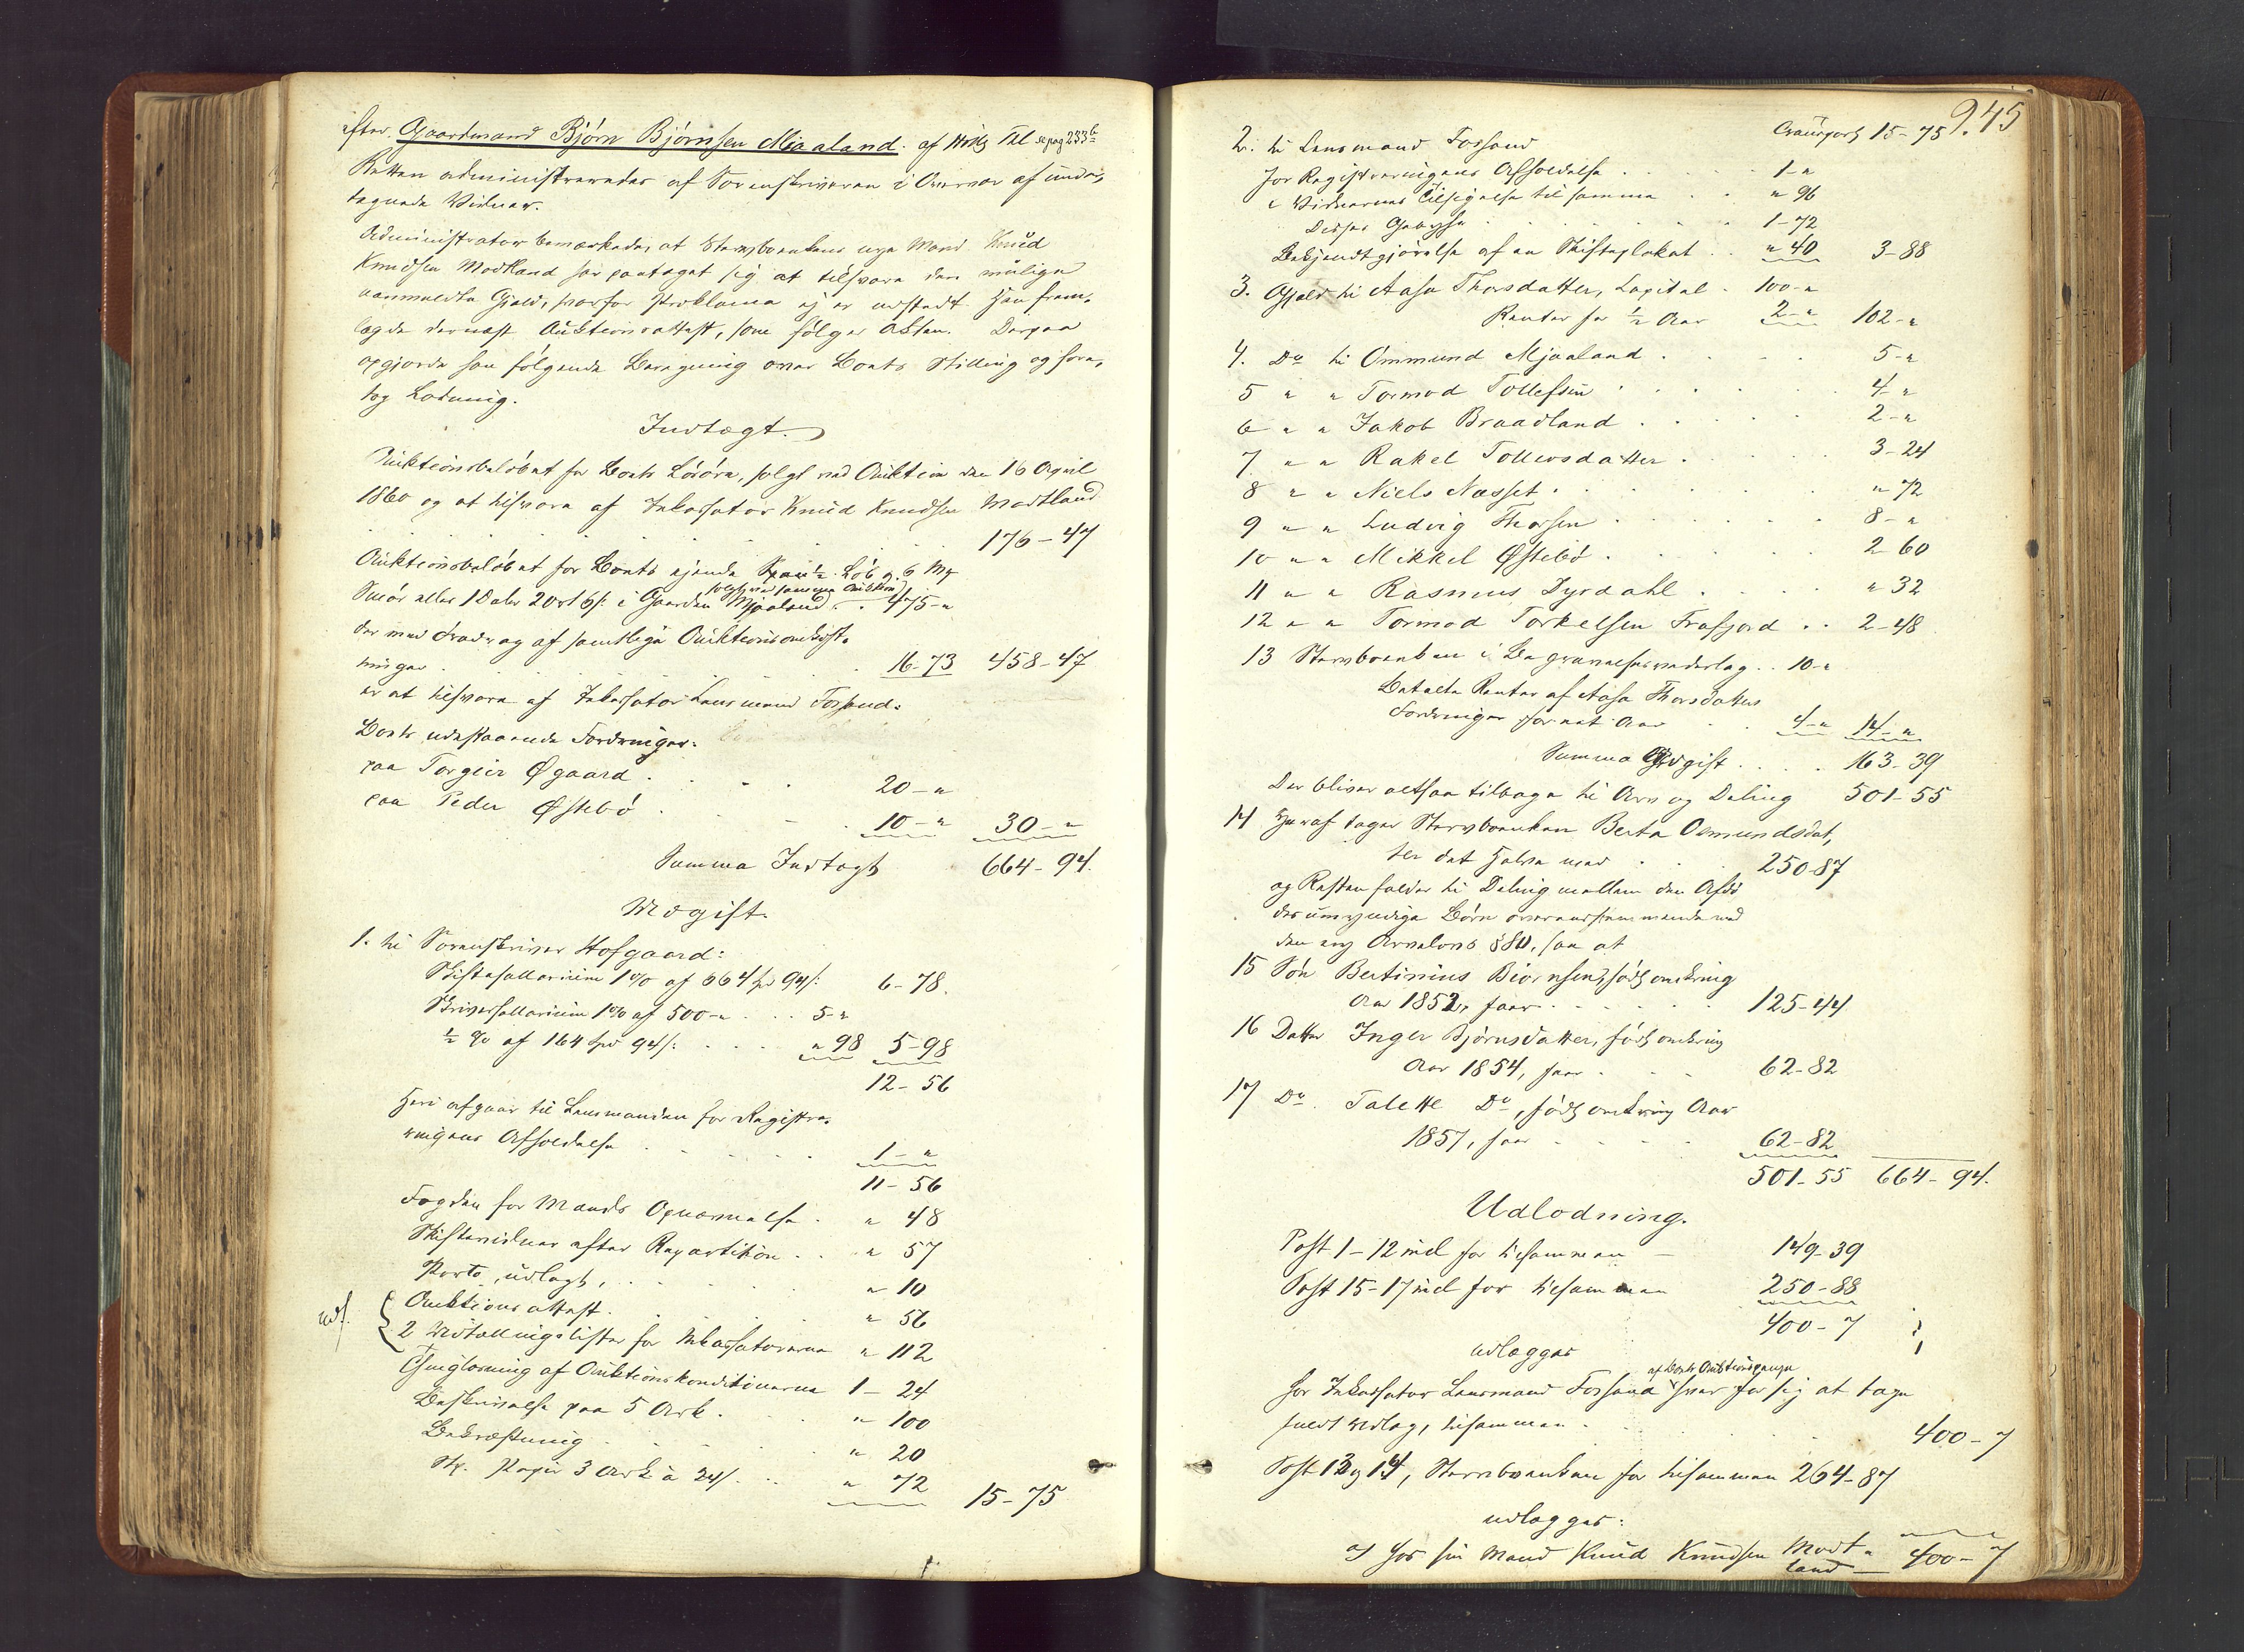 efter Gaardmand Bjørn Bjørnsen Miaaland. af Hølle Thl se pag 233b
Retten administreredes af Sorenskriveren i Overvær af under-
tegnede Vidner.
Administrator bemærkede, at Stervboenkens nye Mand Knud
Knudsen Modtland har paataget sig at tilsvare den mulige
uanmeldte Gjæld, hvorfor Proklama ej er udstedt. Han frem-
lagde dernæst Auktionsattest, som følger Akten. Derpaa
opgjorde han følgende Beregning over Boets Stilling og fore-
tog Lodning.
Indtægt.
Auktionsbeløbet for Boets Løsøre, solgt ved Auktion den 16 April
1860 og at tilsvare af Inkassator Knud Knudsen Modtland
176-47
Auktionsbeløbet for Boets ejende 1/2 Løb og 6 Mrk
Smør eller 1 Daler 2 ort 6 s: i Gaarden Mjaaland solgt ved samme Auktion 475-"
der med Fradrag af samtlige Auktionsomkost-
ninger . 16-73 458-47
er at tilsvare af Inkassator Lensmand Fossand.
Boets udestaaende Fordringer:
paa Torgeir Øgaard . 20-"
paa Peder Østebø . 10-" 30-"
Summa Indtægt 664-94.
Udgift.
1. til Sorenskriver Hofgaard:
Skiftesallarium 1% af 664 Spd 94 s: 6-78.
Skriversallarium 1% af 500-" . . 5-"
1/2 % af 164 Spd 94 s: . . " 98 5-98
12-56
Heri afgaar til Lensmanden for Registre-
ringens Afholdelse . 1-"
11-56
Fogden for Mands Opnævnelse . " 48
Skiftevidner efter Repartition . . " 57
Porto, udlagt, . . " 10
Auktionsattest . . " 56
udf. 2 Udtællingslister for Inkassatorerne " 112
Thinglæsning af Auktionskonditionerne 1-24
Beskrivelse paa 5 Ark . . " 100
Bekræftning . . " 20
St. Papir 3 Ark à 24 s. . . " 72 15-75
245
Transport 15-75
2. til Lensmand Fossand
for Registreringens Afholdelse . . 1-"
" Vidnernes Tilsigelse til samme . . " 96
Disses Gebyrer . . 1-72
Bekjendtgjørelse af en Skifteplakat . . " 40 3-88
3. Gjæld til Aasa Thorsdatter, Kapital . 100-"
Renter for 1/2 Aar 2-" 102-"
4. Do til Ommund Mjaaland . . 5-"
5 " " Tormod Tollefsen . . 4-"
6 " " Jakob Braadland . . 2-"
7 " " Rakel Tollevsdatter . . 3-24
8 " " Niels Næsset . . " 72
9 " " Ludvig Thorsen . . 8-"
10 " " Mikkel Østebø . . 2-60
11 " " Rasmus Dyrdahl . . " 32
12 " " Tormod Torkelsen Frafjord . . 2-48
13 Stervboenken i Begravelsesvederlag . . 10-"
Betalte Renter af Aasa Thorsdatters
Fordringer for et Aar . . 4-" 14-"
Summa Udgift . . 163-39
Der bliver altsaa tilbage til Arv og Deling 501-55
14 Heraf tager Stervboenken Berta Osmundsdat-
ter det Halve med . . 250-87
og Resten falder til Deling mellem den Afdø-
des umyndige Børn overensstemmende med
den ny Arvelovs § 80, saa at
15 Søn Bertinius Biørnsen, født omkring
Aar 1852, faar . . 125-44
16 Datter Inger Bjørnsdatter, født omkring
Aar 1854, faar . . 62-82
17 Do. Talette Do, født omkring Aar
1857, faar . . 62-82
501-55 664-94.
Udlodning.
Post 1-12 incl for tilsammen - 149-39
Post 15-17 incl for tilsammen 250-88
400-7
udlægges
hos Inkassator Lensmand Fossand af Boets Auktionspenge hver for sig at tage
fuldt Udlæg, tilsammen . . 400-7
Post 13 og 14, Stervboenken for tilsammen 264-87
udlægges:
a) hos sin Mand Knud Knudsen Modt-
land 400-7